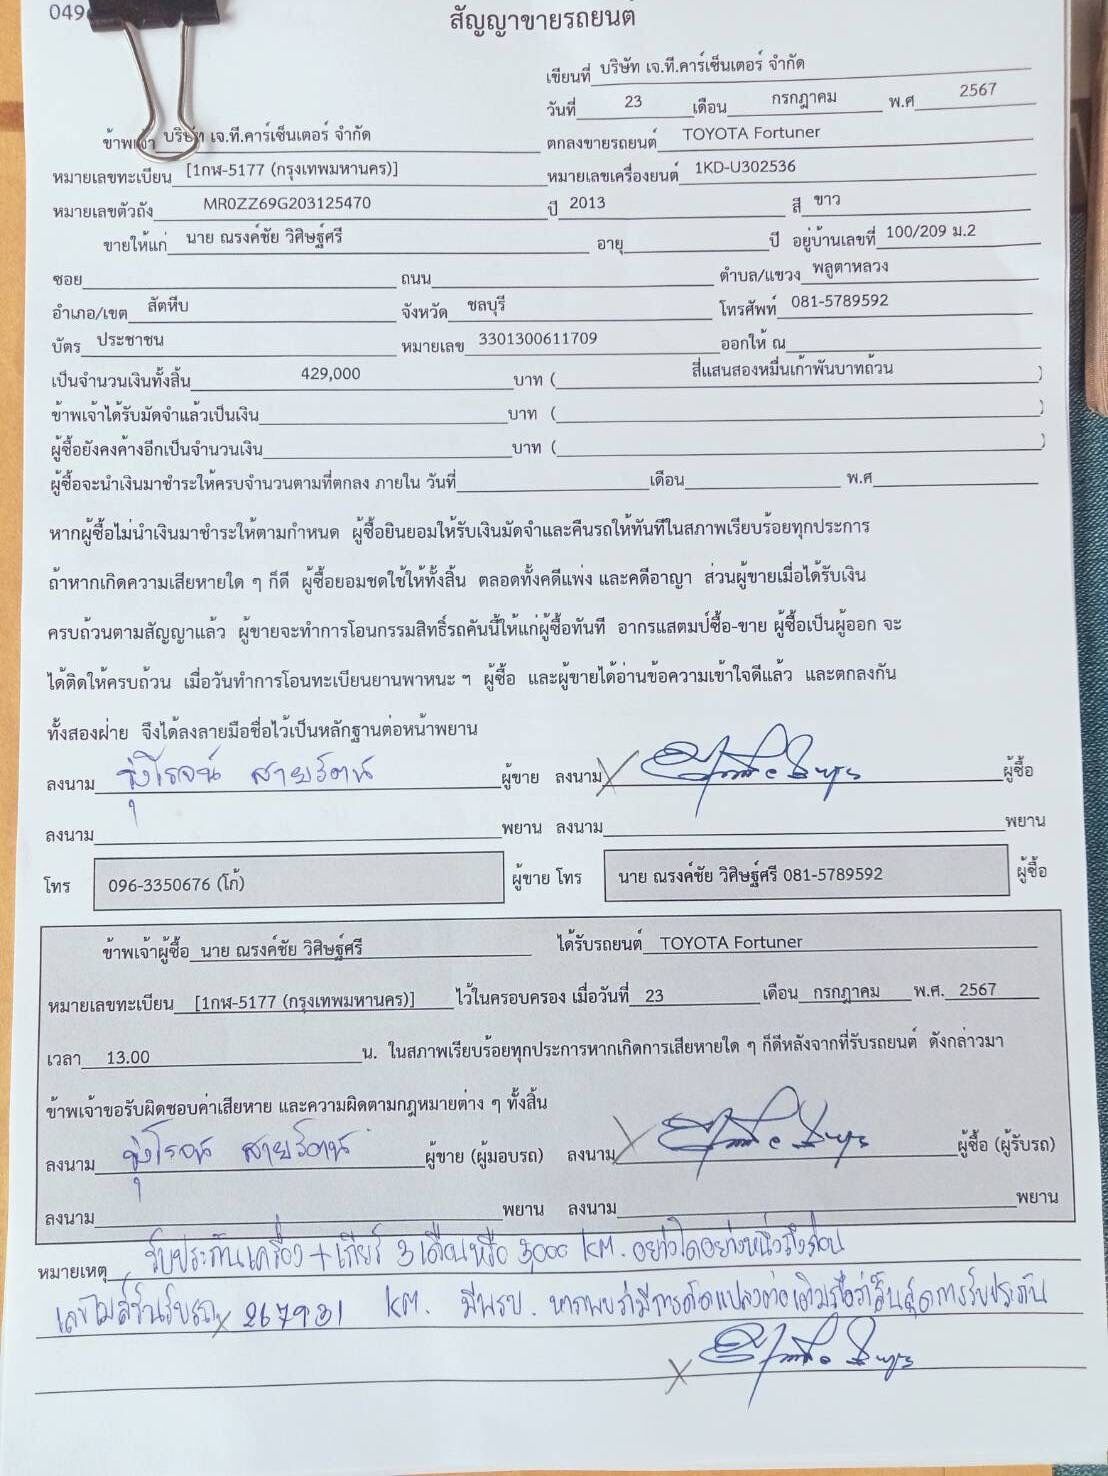 049
สัญญาขายรถยนต์
เขียนที่ บริษัท เจ.ที.คาร์เซ็นเตอร์ จำกัด
วันที่ 23 เดือน กรกฎาคม พ.ศ 2567
ข้าพเจ้า บริษัท เจ.ที.คาร์เซ็นเตอร์ จำกัด ตกลงขายรถยนต์ TOYOTA Fortuner
หมายเลขทะเบียน [1กฬ-5177 (กรุงเทพมหานคร)] หมายเลขเครื่องยนต์ 1KD-U302536
หมายเลขตัวถัง MR0ZZ69G203125470 ปี 2013 สี ขาว
ขายให้แก่ นาย ณรงค์ชัย วิศิษฐ์ศรี อายุ ปี อยู่บ้านเลขที่ 100/209 ม.2
ซอย ถนน ตำบล/แขวง พลูตาหลวง
อำเภอ/เขต สัตหีบ จังหวัด ชลบุรี โทรศัพท์ 081-5789592
บัตร ประชาชน หมายเลข 3301300611709 ออกให้ ณ
เป็นจำนวนเงินทั้งสิ้น 429,000 บาท ( สี่แสนสองหมื่นเก้าพันบาทถ้วน )
ข้าพเจ้าได้รับมัดจำแล้วเป็นเงิน บาท ( )
ผู้ซื้อยังคงค้างอีกเป็นจำนวนเงิน บาท ( )
ผู้ซื้อจะนำเงินมาชำระให้ครบจำนวนตามที่ตกลง ภายใน วันที่ เดือน พ.ศ
หากผู้ซื้อไม่นำเงินมาชำระให้ตามกำหนด ผู้ซื้อยินยอมให้รับเงินมัดจำและคืนรถให้ทันทีในสภาพเรียบร้อยทุกประการ
ถ้าหากเกิดความเสียหายใด ๆ ก็ดี ผู้ซื้อยอมชดใช้ให้ทั้งสิ้น ตลอดทั้งคดีแพ่ง และคดีอาญา ส่วนผู้ขายเมื่อได้รับเงิน
ครบถ้วนตามสัญญาแล้ว ผู้ขายจะทำการโอนกรรมสิทธิ์รถคันนี้ให้แก่ผู้ซื้อทันที อากรแสตมป์ซื้อ-ขาย ผู้ซื้อเป็นผู้ออก จะ
ได้ติดให้ครบถ้วน เมื่อวันทำการโอนทะเบียนยานพาหนะ ฯ ผู้ซื้อ และผู้ขายได้อ่านข้อความเข้าใจดีแล้ว และตกลงกัน
ทั้งสองฝ่าย จึงได้ลงลายมือชื่อไว้เป็นหลักฐานต่อหน้าพยาน
ลงนาม รุ่งโรจน์ สายรัตน์ ผู้ขาย ลงนาม ผู้ซื้อ
ลงนาม พยาน ลงนาม พยาน
โทร 096-3350676 (โก้) ผู้ขาย โทร นาย ณรงค์ชัย วิศิษฐ์ศรี 081-5789592 ผู้ซื้อ
ข้าพเจ้าผู้ซื้อ นาย ณรงค์ชัย วิศิษฐ์ศรี ได้รับรถยนต์ TOYOTA Fortuner
หมายเลขทะเบียน [1กฬ-5177 (กรุงเทพมหานคร)] ไว้ในครอบครอง เมื่อวันที่ 23 เดือน กรกฎาคม พ.ศ. 2567
เวลา 13.00 น. ในสภาพเรียบร้อยทุกประการหากเกิดการเสียหายใด ๆ ก็ดีหลังจากที่รับรถยนต์ ดังกล่าวมา
ข้าพเจ้าขอรับผิดชอบค่าเสียหาย และความผิดตามกฎหมายต่าง ๆ ทั้งสิ้น
ลงนาม รุ่งโรจน์ สายรัตน์ ผู้ขาย (ผู้มอบรถ) ลงนาม ผู้ซื้อ (ผู้รับรถ)
ลงนาม พยาน ลงนาม พยาน
หมายเหตุ รับประกันเครื่อง + เกียร์ 3 เดือนหรือ 3,000 KM. อย่างใดอย่างหนึ่งถึงก่อน
เลขไมล์วันรับรถ 267931 KM. มีพรบ. หากพบว่ามีการดัดแปลงต่อเติมถือว่าสิ้นสุดการรับประกัน